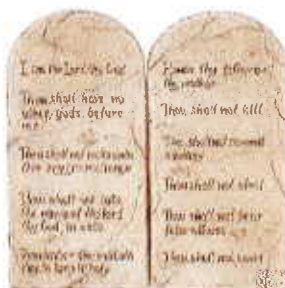 I am the Lord thy God
Thou shall have no
other gods before
me
Thou shall not make unto
Thou shalt not take
the name of the Lord
thy God in vain
Remember the sabbath
day to keep it holy
Honor thy father and
thy mother
Thou shall not kill
Thou shall not commit
adultery
Thou shall not steal
Thou shall not bear
false witness
Thou shall not covet